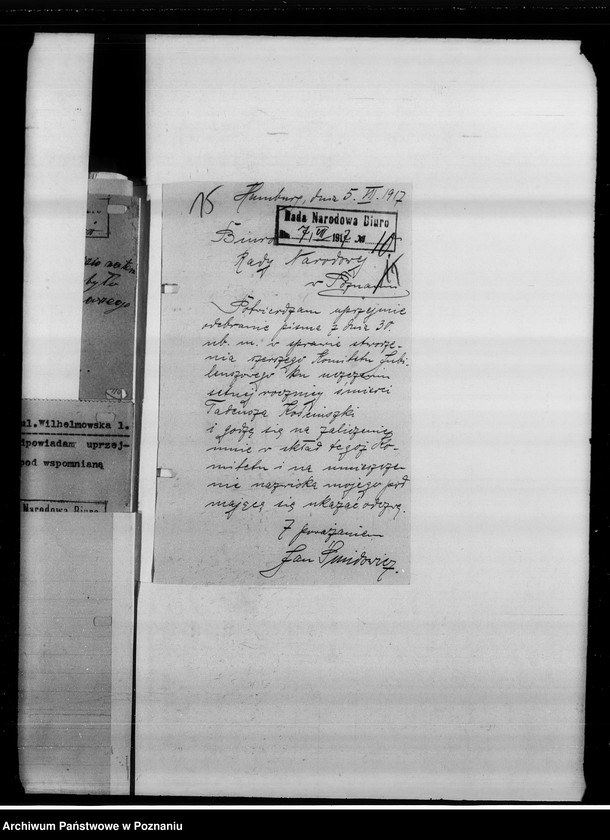 15
Hamburg, dnia 5. VII. 1917
Rada Narodowa Biuro
7, VII 1917
Biuro
Rady Narodowej
w Poznaniu
Potwierdzam uprzejmie
odebranie pisma z dnia 30.
ub. m. w sprawie stworze-
nia szerszego Komitetu Jubi-
leuszowego ku uczczeniu
setnej rocznicy śmierci
Tadeusza Kościuszki
i godzę się na zaliczenie
mnie w skład tegoż Ko-
mitetu i na umieszcze-
nie nazwiska mojego pod
mającą się ukazać odezwą.
Z poważaniem
Jan Śmidowicz.
było
ul.Wilhelmowska 1.
dpowiadam uprzej-
pod wspomnianą
Narodowa Biuro
Archiwum Państwowe w Poznaniu